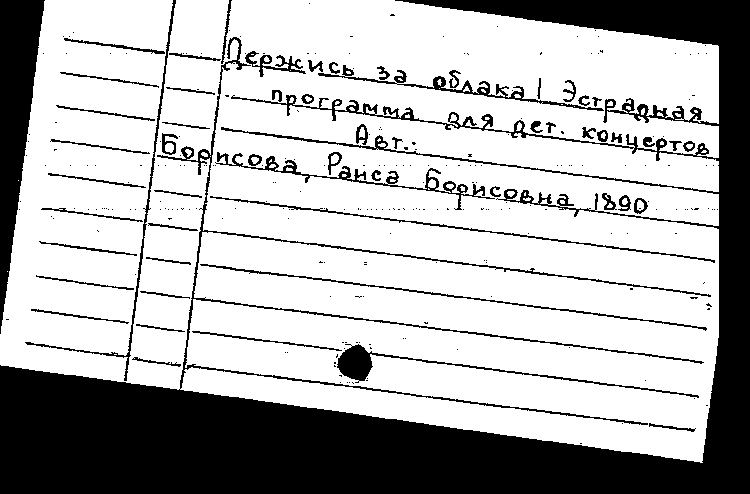 Держись за облака! Эстрадная
программа для дет. концертов
Авт.:
Борисова, Раиса Борисовна, 1890